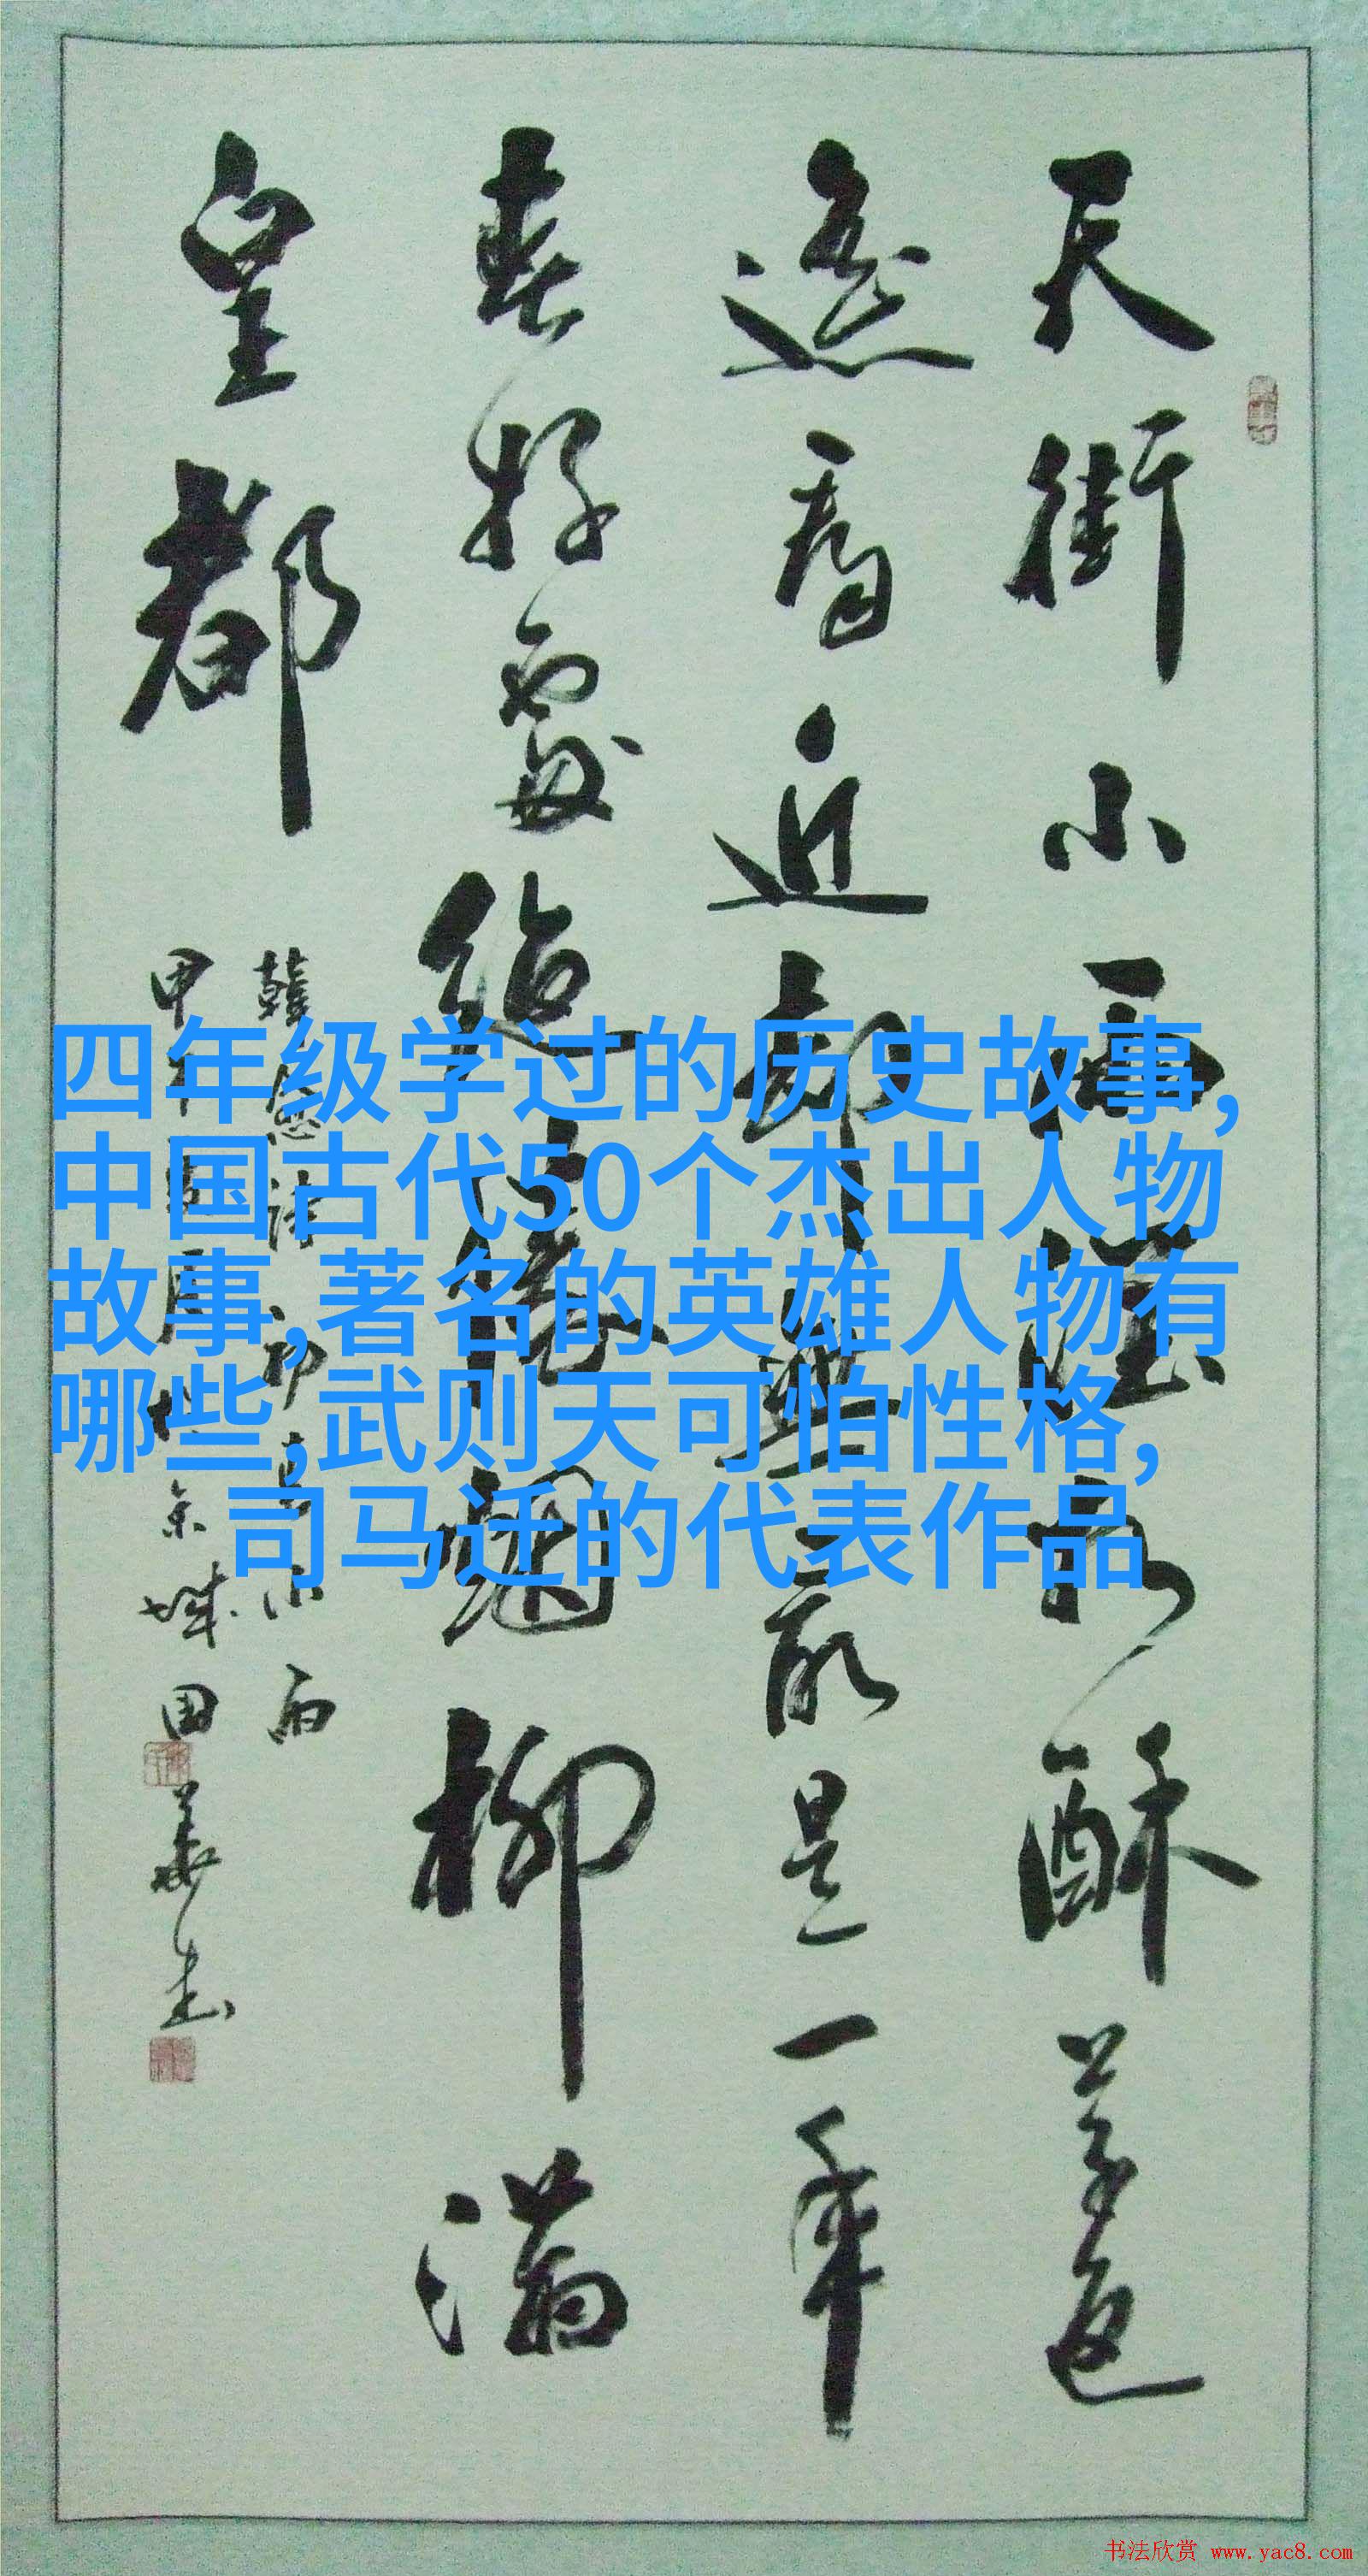 天街小雨润如酥草色
遥看近却无最是一年
春好处绝胜烟柳满
皇都
四年级学过的历史故事,
中国古代50个杰出人物
故事,著名的英雄人物有
哪些,武则天可怕性格,
司马迁的代表作品
书法欣赏 www.yac8.com